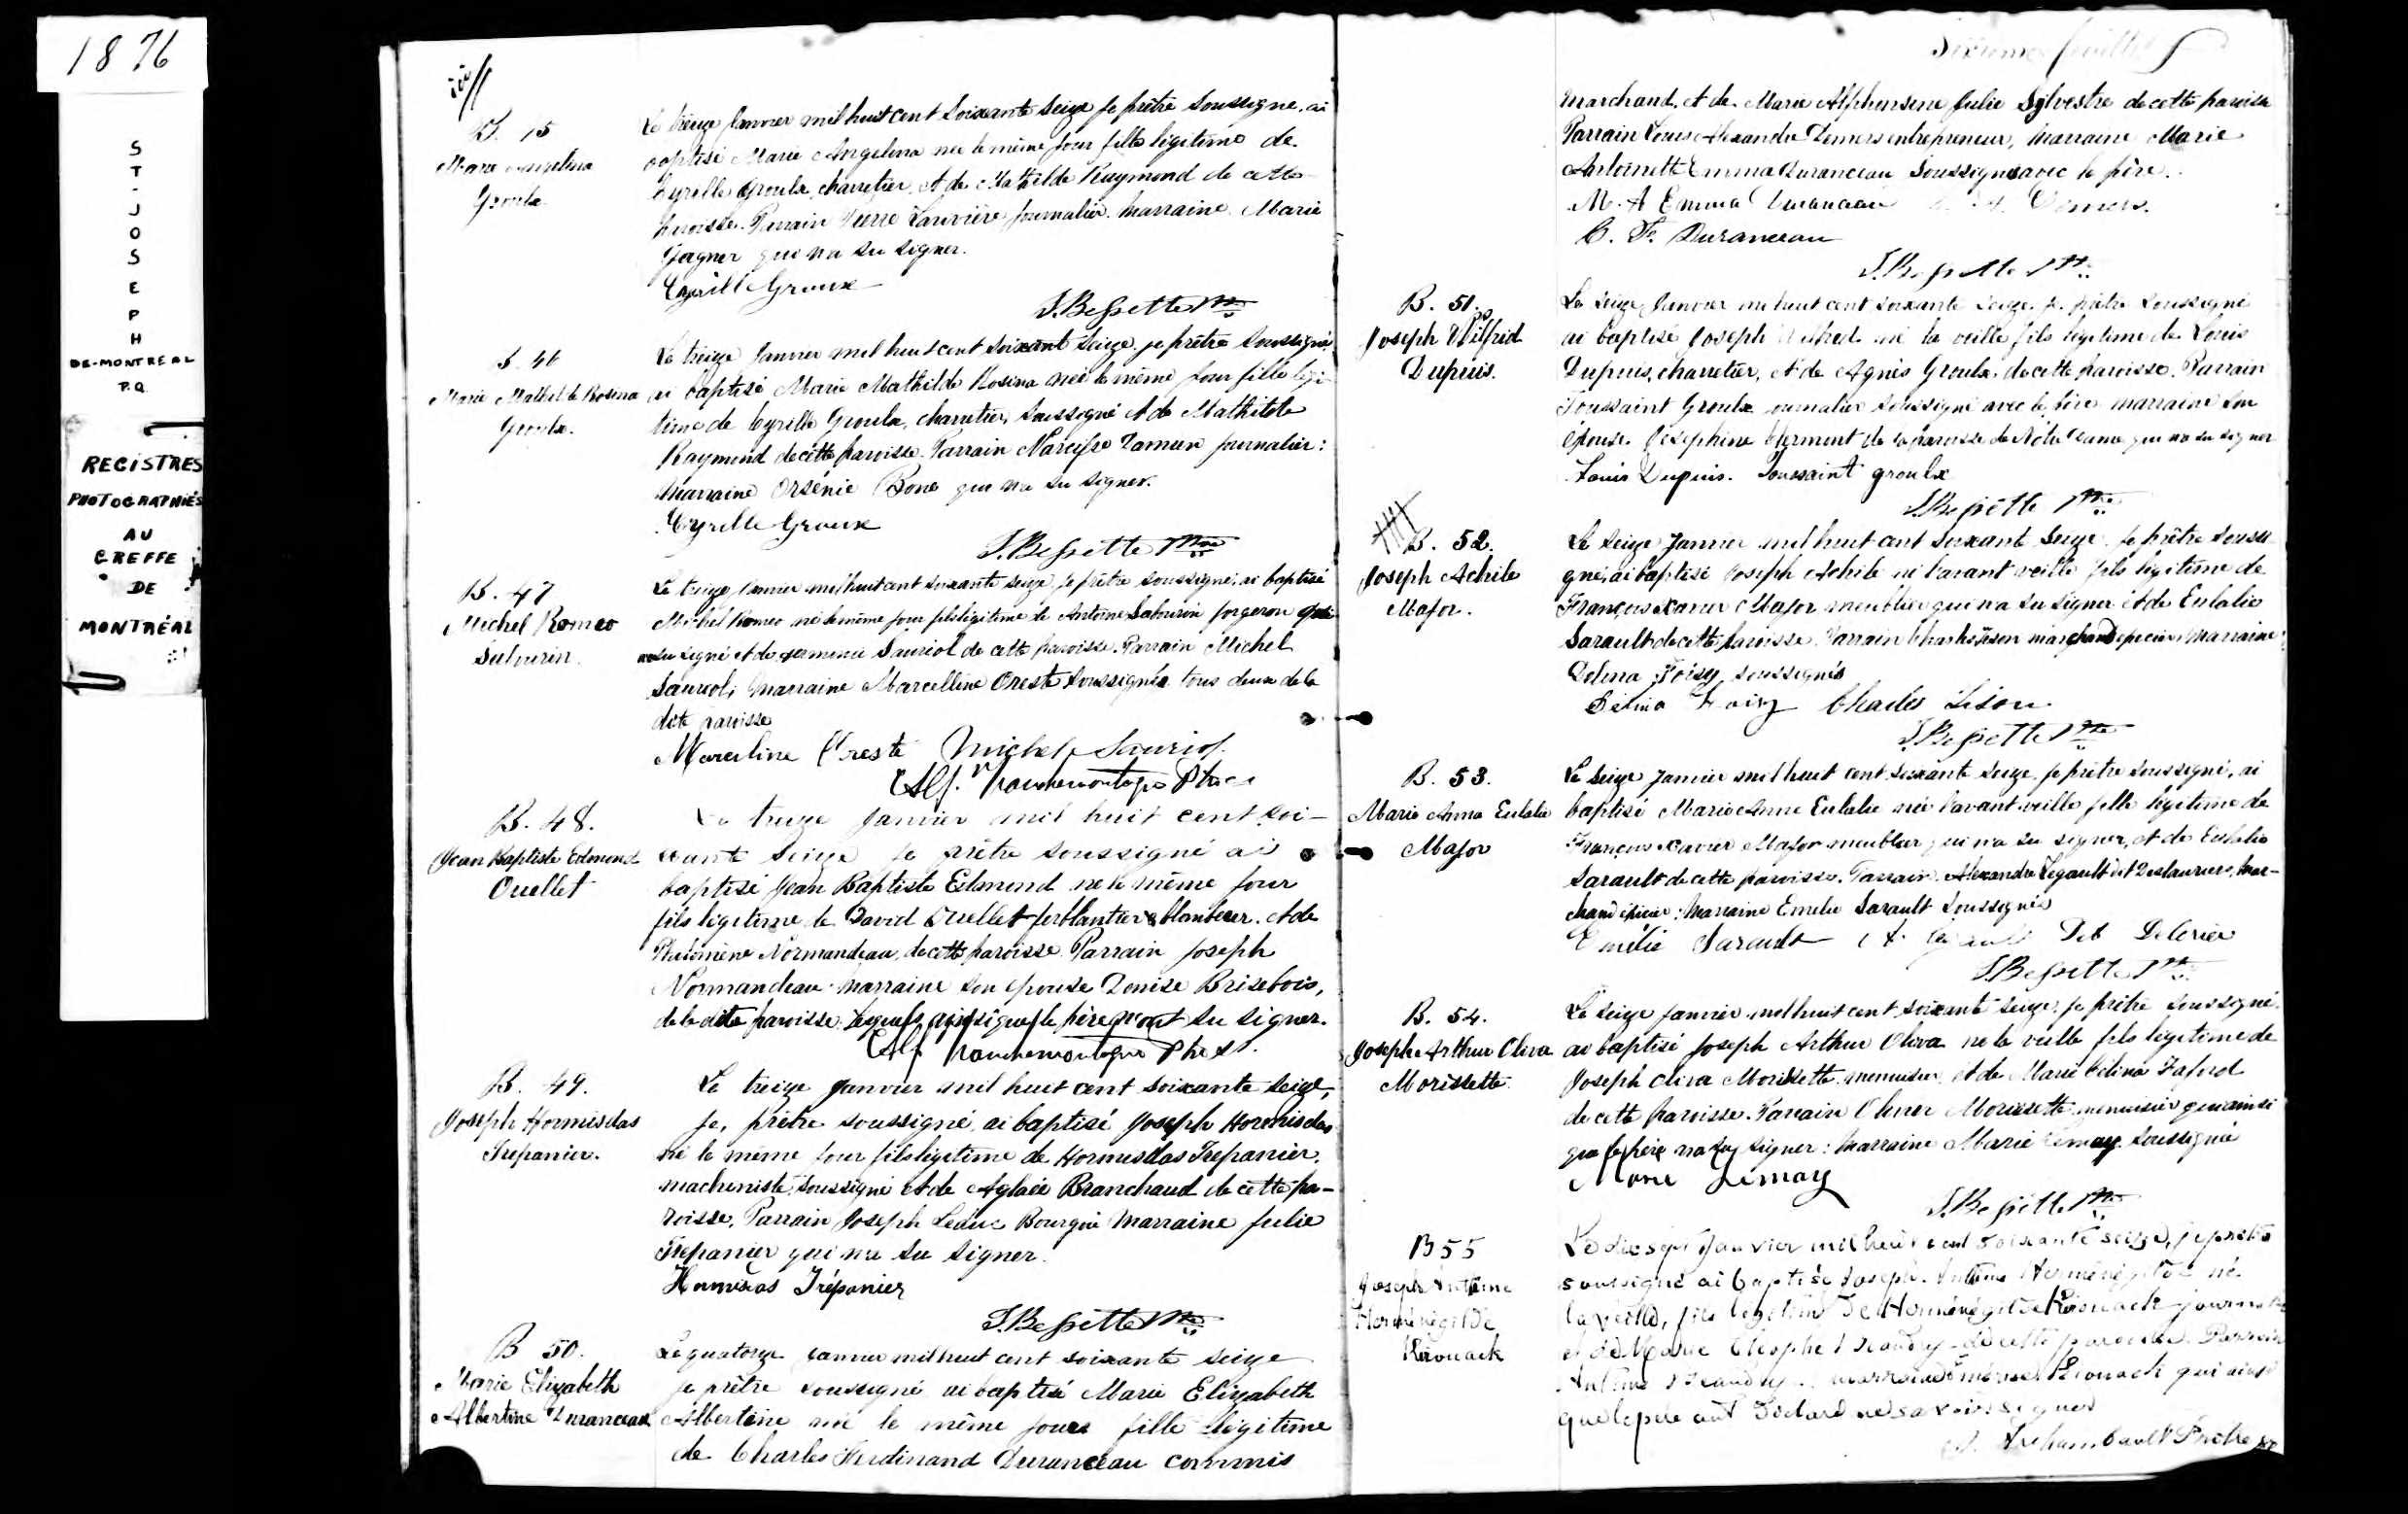 1876
S
T
-
J
O
S
E
P
H
DE-MONTREAL
P.Q.
REGISTRES
PHOTOGRAPHIÉS
AU
GREFFE
DE
MONTRÉAL
B. 45
Marie Angelina
Groulx
Le treize Janvier mil huit cent soixante seize je prêtre soussigné, ai
baptisé Marie Angelina née le même jour fille légitime de
Cyrille Groulx charretier, et de Mathilde Raymond de cette
paroisse. Parrain Pierre Larivière journalier. Marraine Marie
Gagner qui n'a su signer.
Cyrille Groux
J. Bessette Ptre
B. 46
Marie Mathilde Rosina
Groulx.
Le treize Janvier mil huit cent soixant seize je prêtre soussigné
ai baptisé Marie Mathilde Rosina née le même jour fille légi-
time de Cyrille Groulx, charretier, soussigné et de Mathilde
Raymond de cette paroisse. Parrain Narcisse journalier:
Marraine Orsénie Bone qui n'a su signer.
Cyrille Groux
J. Bessette Ptre
B. 47
Michel Romeo
Sabourin.
Le treize Janvier mil huit cent soixante seize, je prêtre soussigné, ai baptisé
Michel Romeo né le même jour fils légitime de Antoine Sabourin forgeron qui
n'a su signé et de Herminie Sauriol de cette paroisse. Parrain Michel
Sauriol, Marraine Marcelline Oreste soussignés tous deux de la
dite paroisse
Marceline Creste Michel Sauriol
Alf. Ptre
B. 48.
Jean Baptiste Edmond
Ouellet
Le treize Janvier mil huit cent soi-
xante seize je prêtre soussigné ai
baptisé Jean Baptiste Edmond né le même jour
fils légitime de David Ouellet ferblantier & et de
Philomène Normandeau, de cette paroisse. Parrain Joseph
Normandeau marraine son épouse Denise Brisebois,
de la dite paroisse lesquels ainsi que le père n'ont su signer.
Alf. Ptre
B. 49.
Joseph Hormisdas
Trépanier.
Le treize Janvier mil huit cent soixante seize,
Je, prêtre soussigné, ai baptisé Joseph Hormisdas
né le même jour fils légitime de Hormisdas Trépanier,
machiniste soussigné et de Aglaée Branchaud de cette pa-
roisse, Parrain Joseph Leduc Bourgeois Marraine Julie
Trépanier qui n'a su signer.
Hormisdas Trépanier
J. Bessette Ptre
B 50.
Marie Elizabeth
Albertine Duranceau
Le quatorze Janvier mil huit cent soixante seize
je prêtre soussigné ai baptisé Marie Elizabeth
Albertine née le même jour fille légitime
de Charles Ferdinand Duranceau commis
Sixième feuillet
Marchand, et de Marie Alphonsine Julie Sylvestre de cette paroisse
Parrain Louis Alexandre Demers entrepreneur, Marraine Marie
Antoinette Emma Duranceau Soussignés avec le père.
M. A Emma Duranceau Demers.
C. F. Duranceau
J. Bessette Ptre
B. 51.
Joseph Wilfrid
Dupuis.
Le seize Janvier mil huit cent soixante seize je prêtre soussigné
ai baptisé Joseph Wilfred né la veille fils légitime de Louis
Dupuis, charretier, et de Agnès Groulx, de cette paroisse. Parrain
Toussaint Groulx journalier soussigné avec le père marraine son
épouse Joséphine Clermont de la paroisse de Notre Dame qui n'a su signer
Louis Dupuis. Toussaint groulx
J. Bessette Ptre
B. 52.
Joseph Achile
Major.
Le seize Janvier mil huit cent soixante seize je prêtre soussi-
gné, ai baptisé Joseph Achile né l'avant veille fils légitime de
François Xavier Major meublier qui n'a su signer et de Eulalie
Sarault de cette paroisse. Parrain Charles marchand épicier Marraine
Delima Foisy, soussignés
Delima Foisy Charles
J. Bessette Ptre
B. 53.
Marie Anna Eulalie
Major
Le seize Janvier mil huit cent soixante seize, je prêtre soussigné, ai
baptisé Marie Anne Eulalie née l'avant veille fille légitime de
François Xavier Major meublier qui n'a su signer, et de Eulalie
Sarault de cette paroisse. Parrain Alexandre Legault dit Deslauriers, mar-
chand épicier: Marraine Emelie Sarault soussignés
Emélie Sarault
J. Bessette Ptre
B. 54.
Joseph Arthur Oliva
Morissette.
Le seize Janvier mil huit cent soixante seize, je prêtre soussigné
ai baptisé Joseph Arthur Oliva né la veille fils légitime de
Joseph Oliva Morissette menuisier, et de Marie Célina Laford
de cette paroisse. Parrain Morissette menuisier qui ainsi
que le père n'a su signer: Marraine Marie Lemay soussignée
Marie Lemay
J. Bessette Ptre
B 55
Joseph Antime
Herménégilde
Kirouack
Le dix sept Janvier mil huit cent soixante seize, je prêtre
soussigné ai baptisé Joseph Antime Herménégilde né
la veille, fils légitime de Herménégilde Kirouack journalier
et de Marie Cléophe Beaudry de cette paroisse Parrain
Antime Beaudry marraine Kirouack qui ainsi
que le père ont déclaré ne savoir signer
Archambault Prêtre